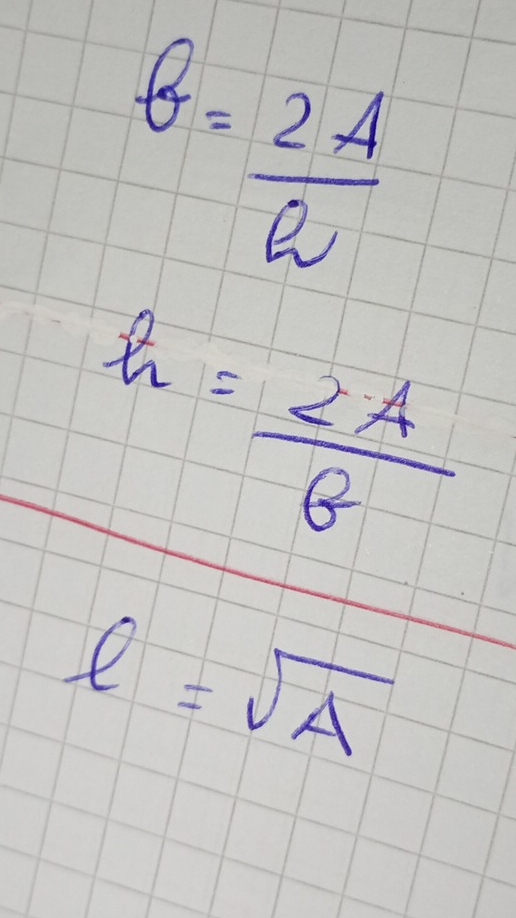 b = 2A
h
h = 2A
b
l = √A